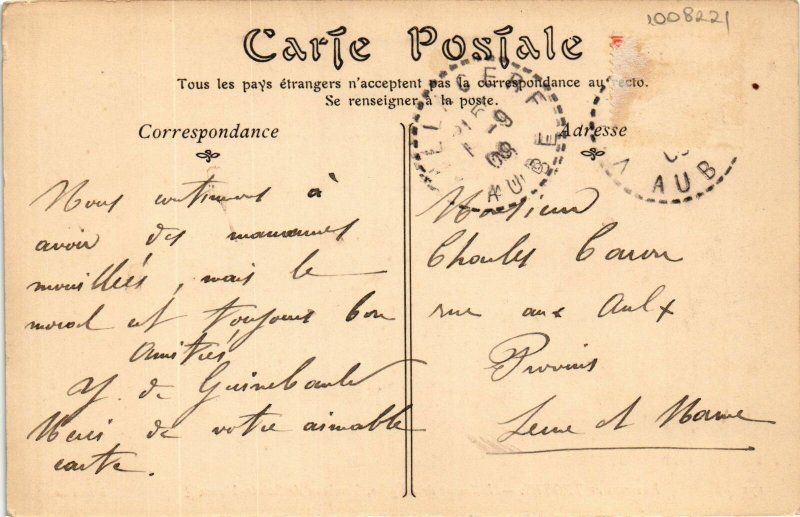 1008221
Carte Postale
Tous les pays étrangers n'acceptent pas la correspondance au recto.
Se renseigner à la poste.
Correspondance
Adresse
AUBE
AUB
Nous continuons à
avoir des manœuvres
mouillées, mais le
moral est toujours bon
Amitiés
Y. de
Merci de votre aimable
carte.
Monsieur
Charles Caron
rue aux Aulx
Provins
Seine et Marne